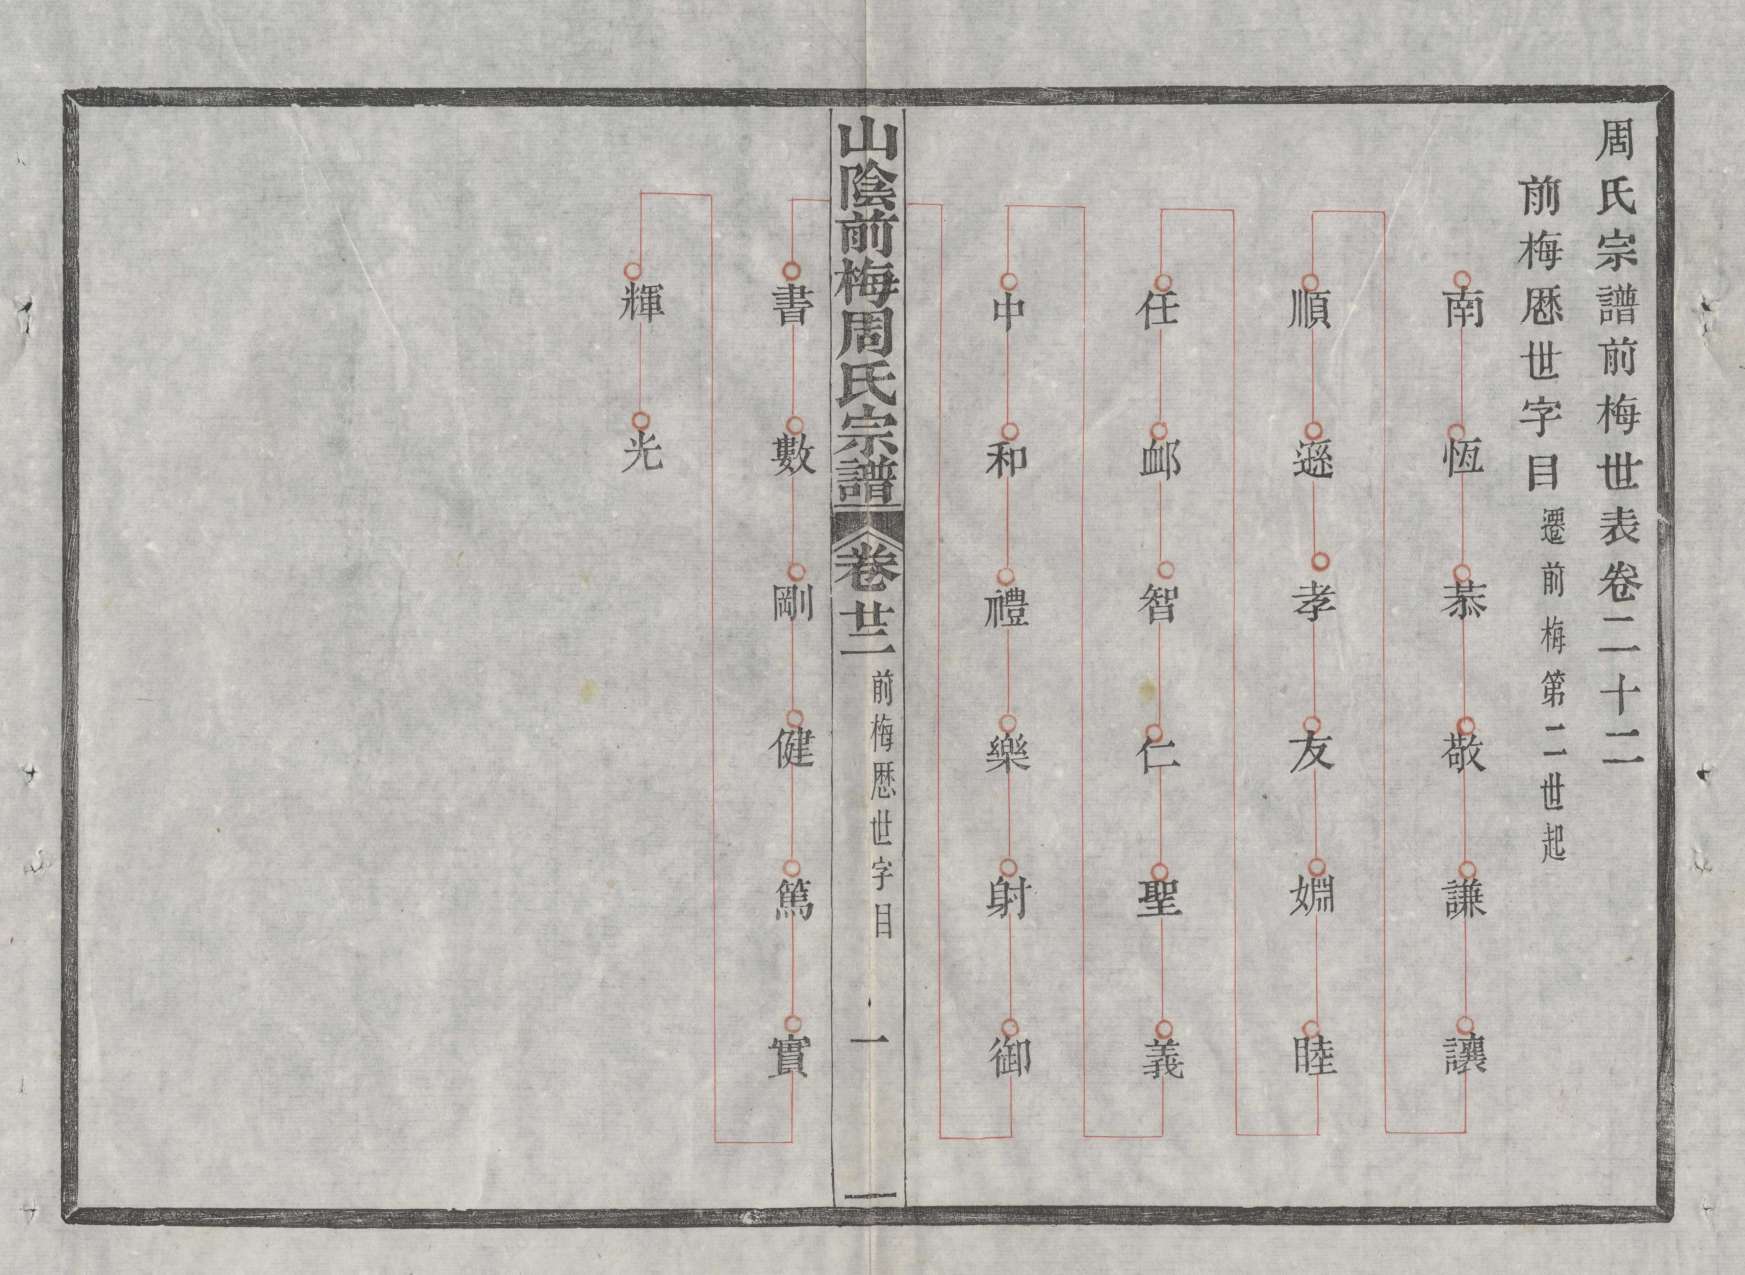 周氏宗譜前梅世表卷二十二
前梅厯世字目遷前梅第二世起
南恆恭敬謙讓
順遜孝友婣睦
任䘏智仁聖義
中和禮樂射御
山陰前梅周氏宗譜
卷廿二
前梅厯世字目
一
書數剛健篤實
輝光